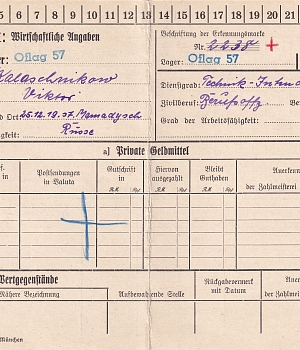 5 6 7 8 9 10 11 12 13 14 15 16 17 18 19 20 21
: Wirtschaftliche Angaben
Beschriftung der Erkennungsmarke
Nr. 2238 +
er: Oflag 57
Lager: Oflag 57
Kalaschnikow
Viktor
Dienstgrad: Technik-Intend
Zivilberuf: Berufsoffz
d Ort: 25.12.19
Grad der Arbeitsfähigkeit:
igkeit: Russe
a) Private Geldmittel
f. in
Postsendungen in Valuta
Gutschrift in
RM Rpf
Hiervon ausgezahlt
RM Rpf
Bleibt Guthaben
RM Rpf
Anerk
der Zahlmeisterei
Wertgegenstände
Nähere Bezeichnung
Aufbewahrende Stelle
Rückgabevermerk mit Datum
Anerk
der Zahlmeisterei
München